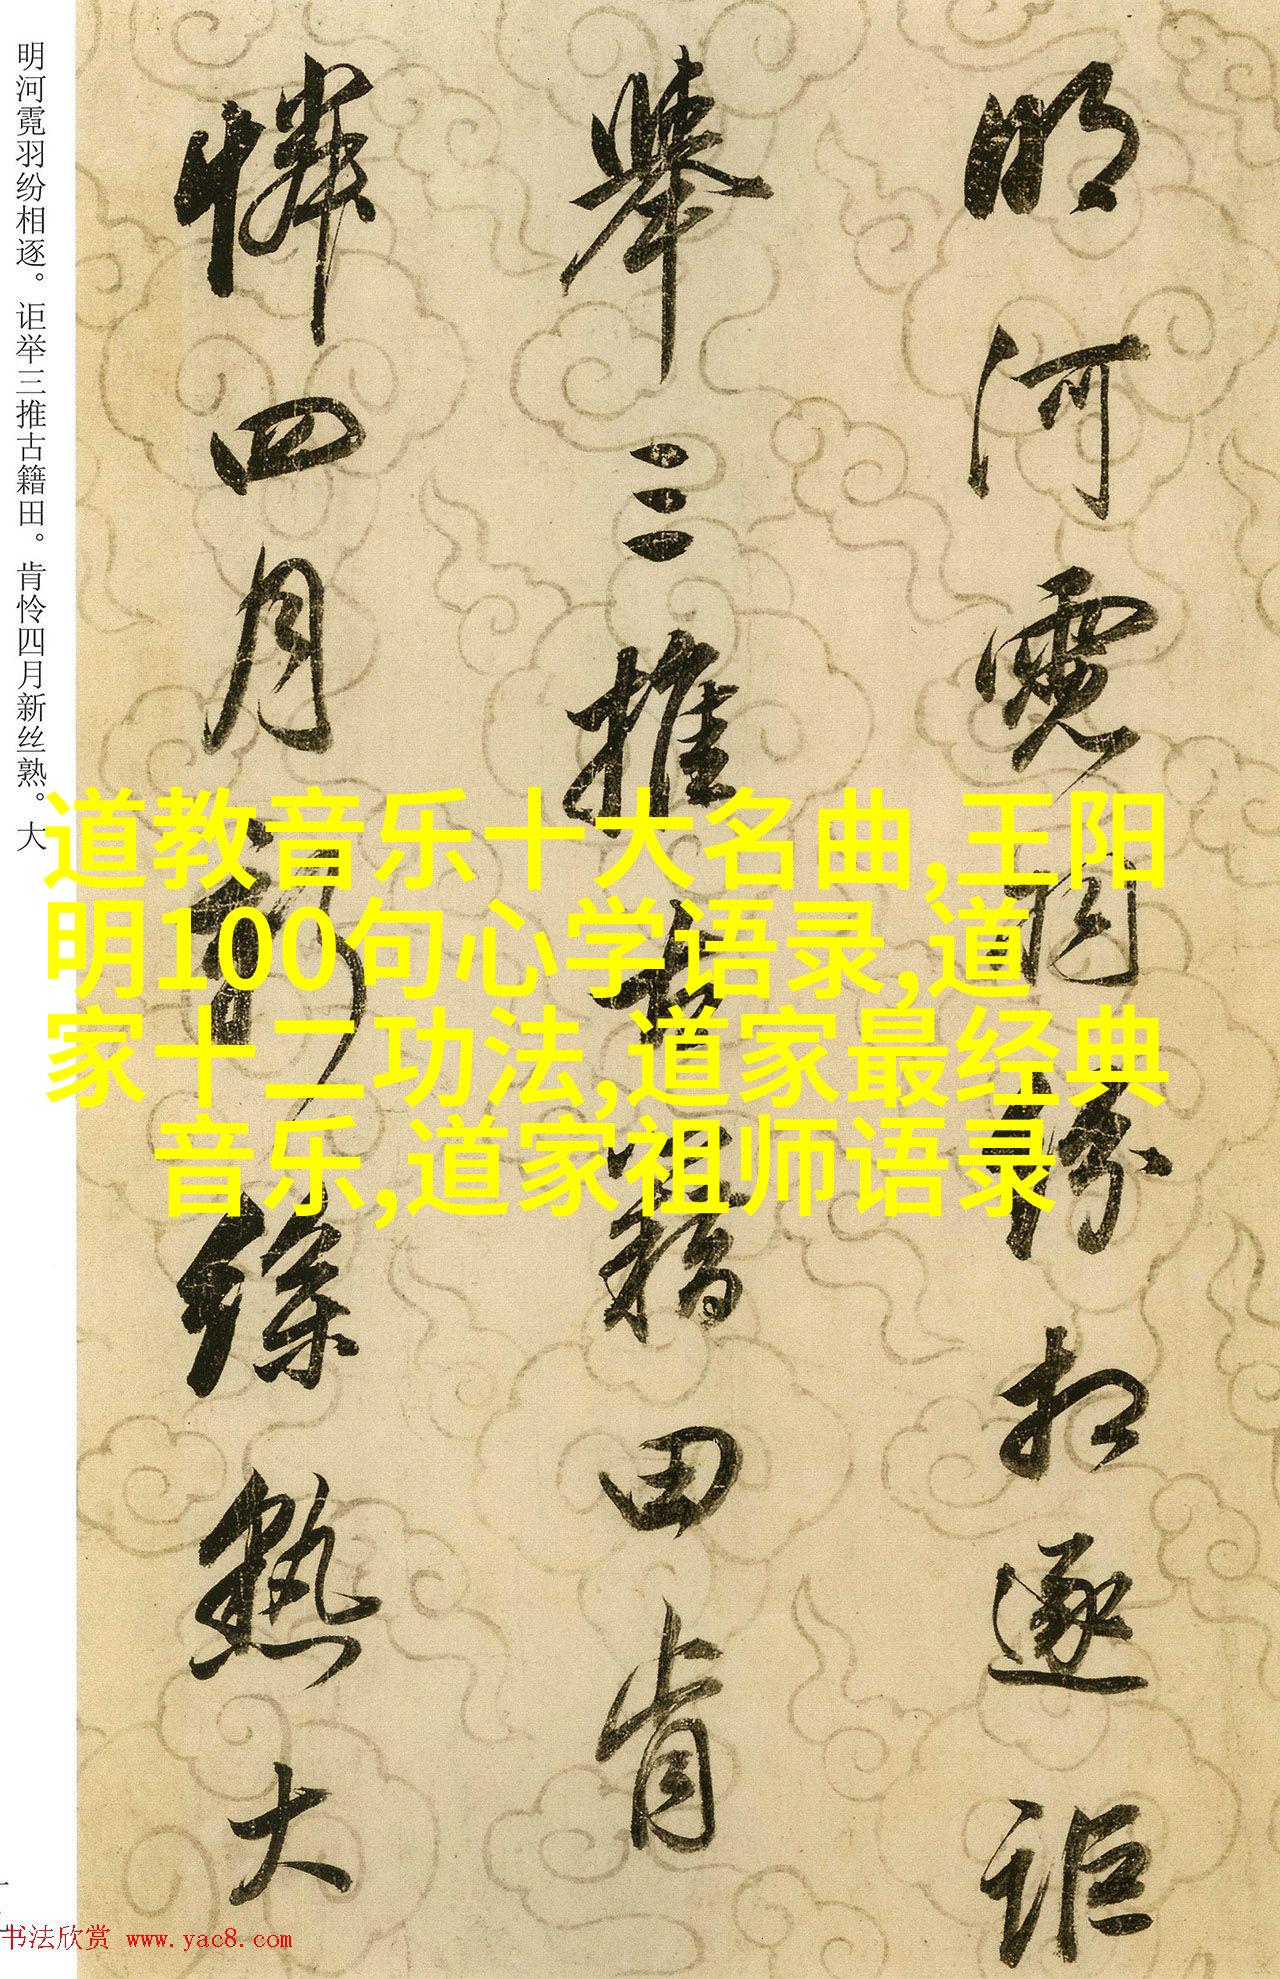 明河霓羽纷相逐。讵举三推古籍田。肯怜四月新丝熟。大
明河霓羽紛相逐詎
舉三推古籍田肯
憐四月新絲熟大
道教音乐十大名曲,王阳
明100句心学语录,道
家十二功法,道家最经典
音乐,道家祖师语录
书法欣赏 www.yac8.com